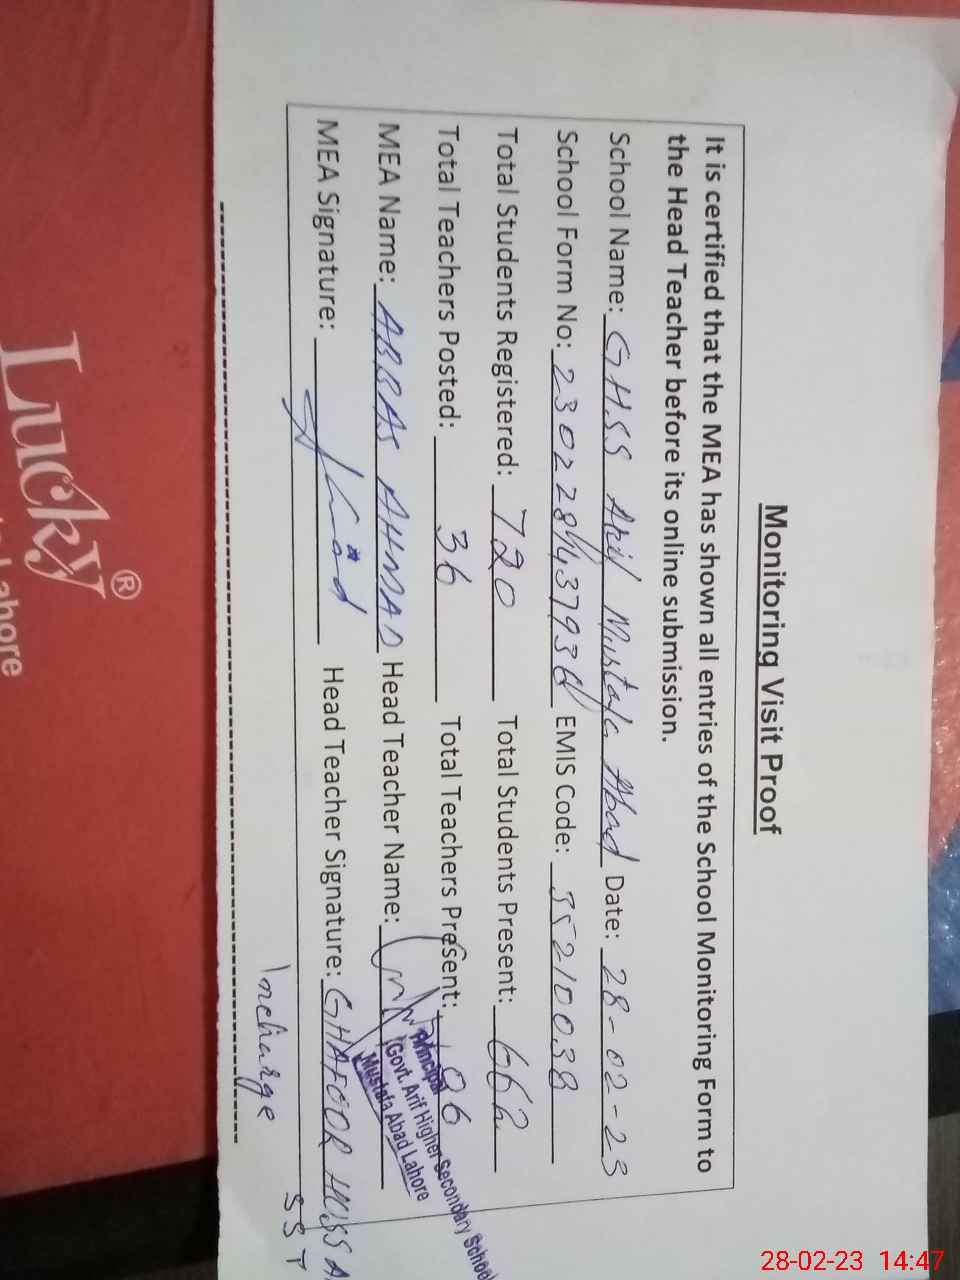 Monitoring Visit Proof
It is certified that the MEA has shown all entries of the School Monitoring Form to
the Head Teacher before its online submission.
School Name: GHSS Arif Mustafa Abad Date: 28-02-23
School Form No: EMIS Code: 35210038
Total Students Registered: 720 Total Students Present: 662
Total Teachers Posted: 36 Total Teachers Present:
MEA Name: ABBAS AHMAD Head Teacher Name:
MEA Signature: Head Teacher Signature: GHAFOOR HUSSA
SST
Incharge
Principal
Govt. Arif Higher Secondary School
Mustafa Abad Lahore
Lucky®
Lahore
28-02-23 14:47